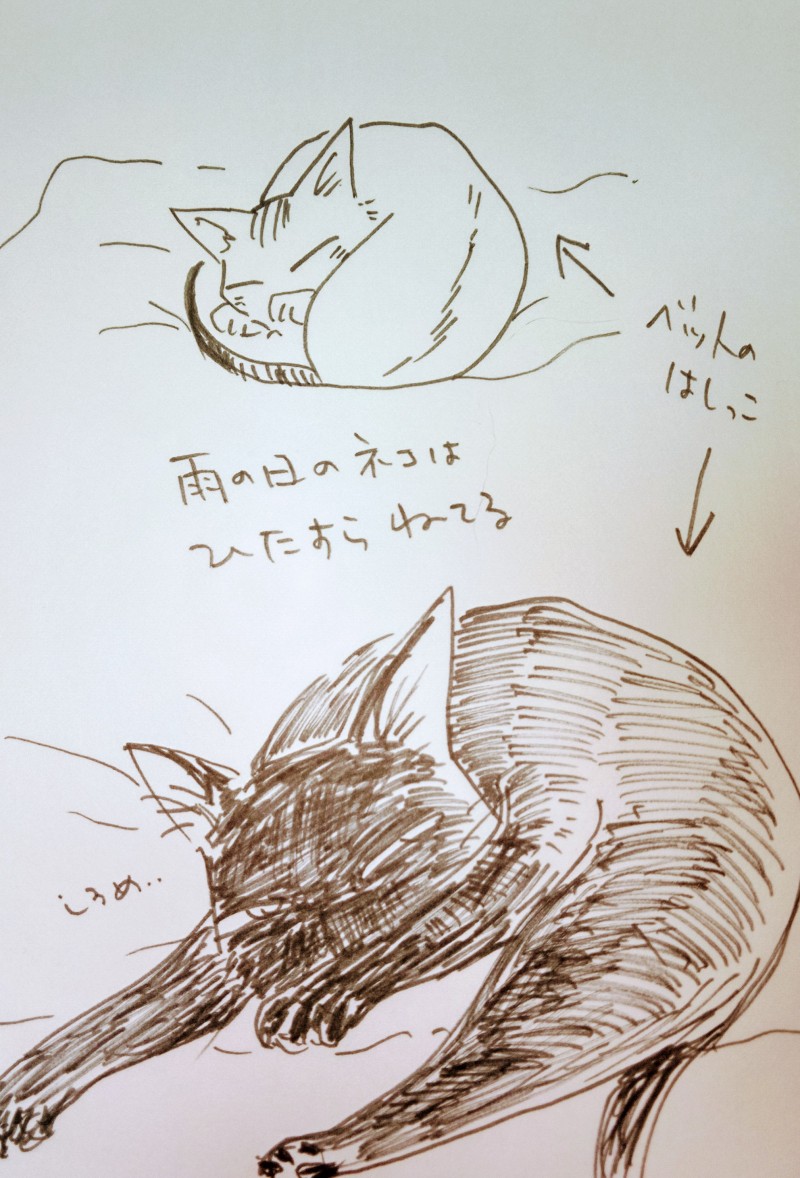 ベットの
はしっこ
雨の日のネコは
ひたすらねてる
しろめ..